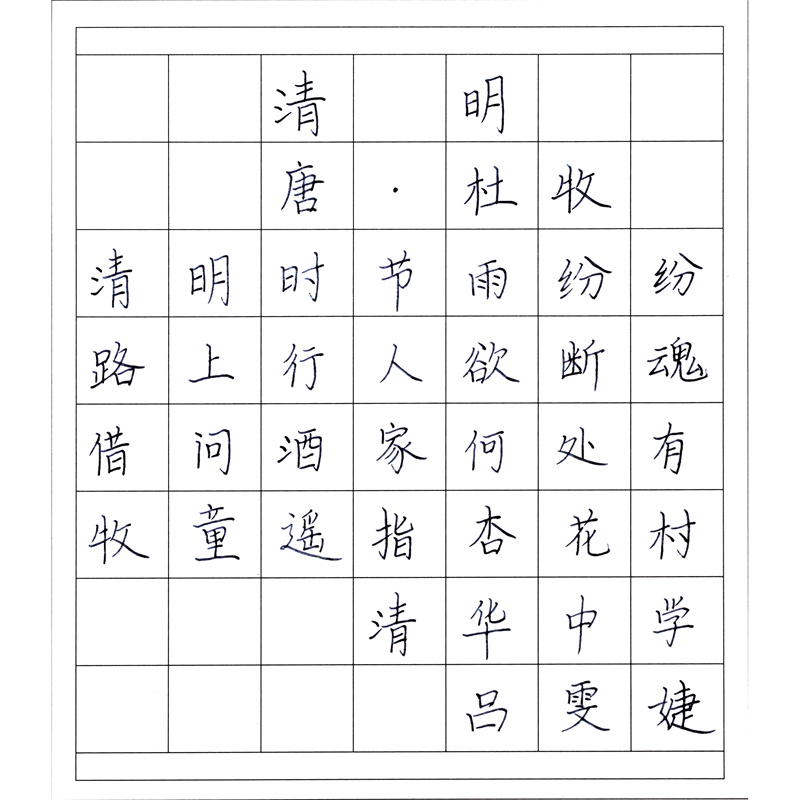 清明
唐·杜牧
清明时节雨纷纷
路上行人欲断魂
借问酒家何处有
牧童遥指杏花村
清华中学
吕雯婕